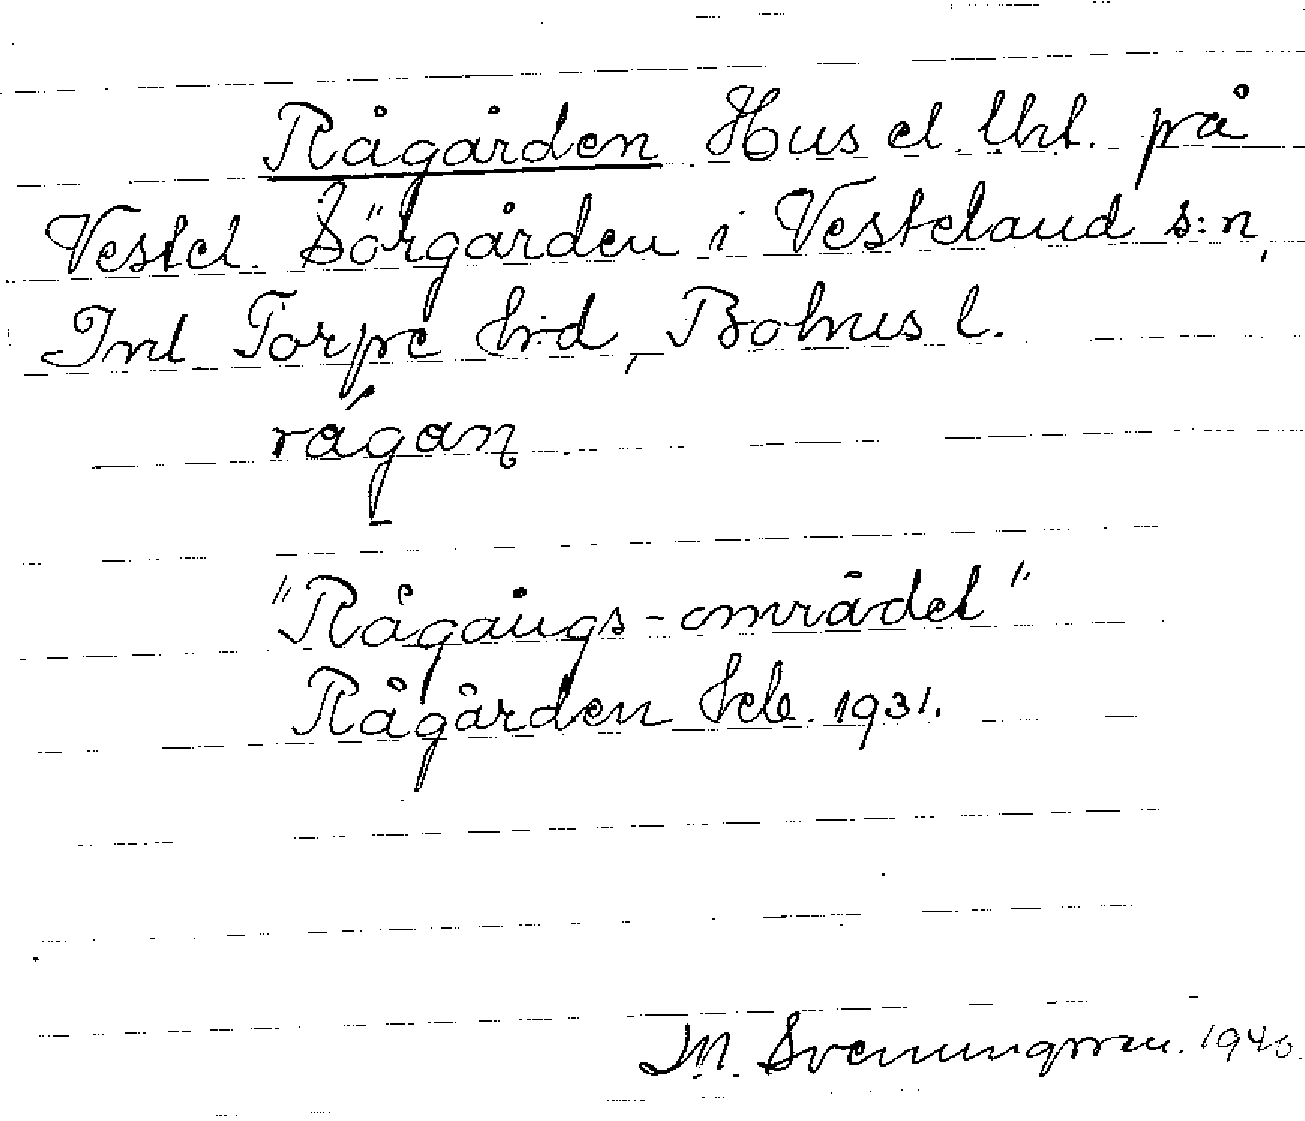 Rågården Hus el. lht. på
Vestel. Sörgården i Vesteland s:n,
Inl Torpe hd, Bohus l.
rågaɳ
"Rågångs-området"
Rågården Jeb. 1931.
M. Svenungsson. 1940.